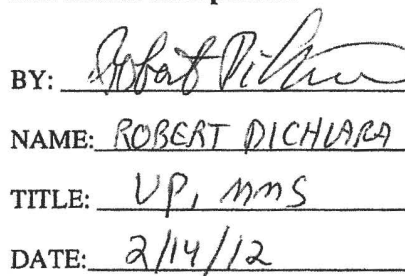 BY: Robert DiChiara
NAME: ROBERT DICHIARA
TITLE: VP, MMS
DATE: 2/14/12